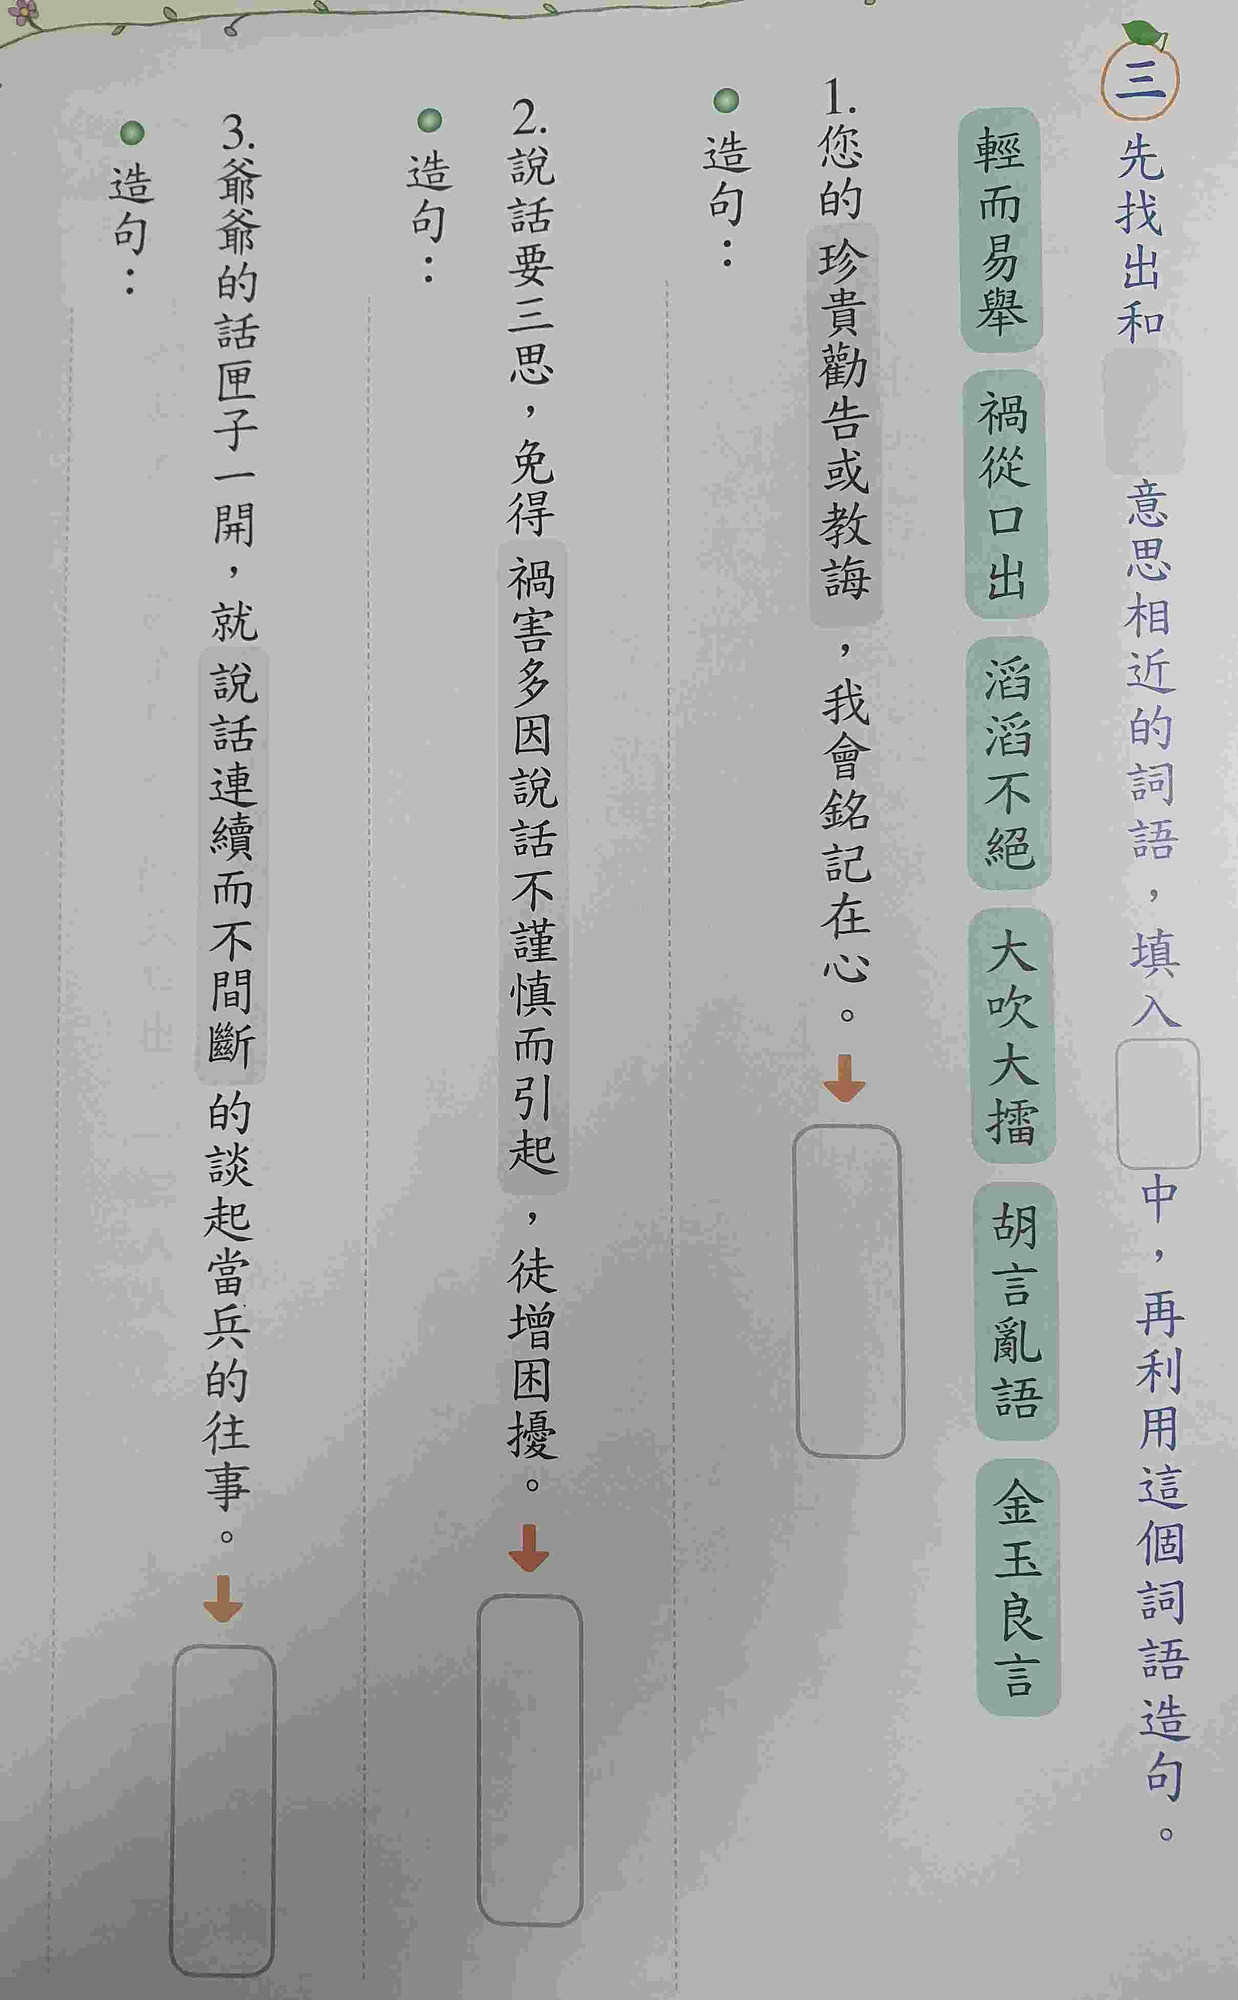 三 先找出和　意思相近的詞語，填入　中，再利用這個詞語造句。
輕而易舉 禍從口出 滔滔不絕 大吹大擂 胡言亂語 金玉良言
1.您的珍貴勸告或教誨，我會銘記在心。
造句：
2.說話要三思，免得禍害多因說話不謹慎而引起，徒增困擾。
造句：
3.爺爺的話匣子一開，就說話連續而不間斷的談起當兵的往事。
造句：